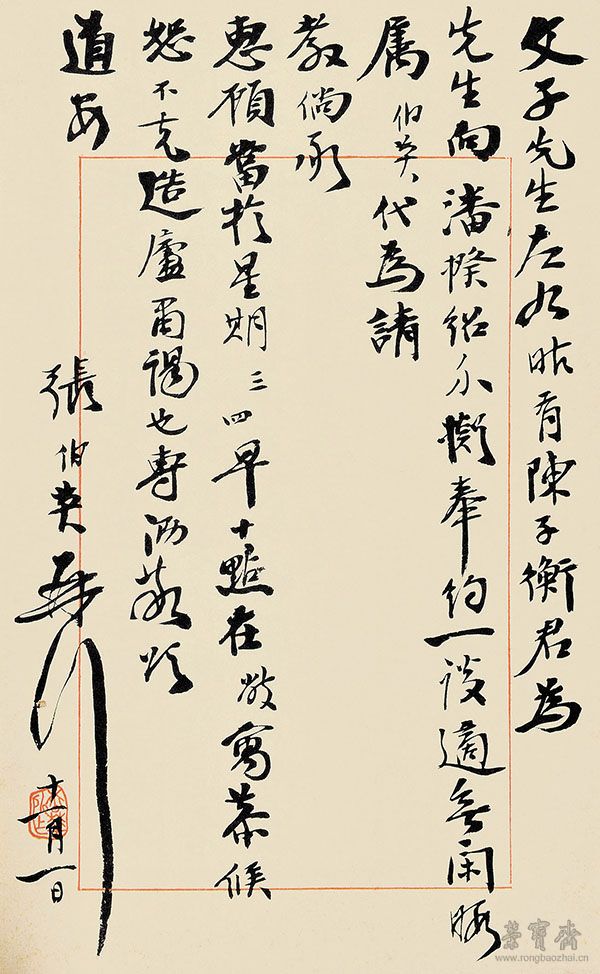 父子先生左右昨有陳子衡君為
先生向潘揆紹介擬奉約一談適無閑暇
属伯英代為請
教倘承
惠顧當於星期三四早十點在敝寓恭候
恕不克造廬面謁也專泐敬頌
道安
張伯英
十一月一日
榮寶齋
www.rongbaozhai.cn